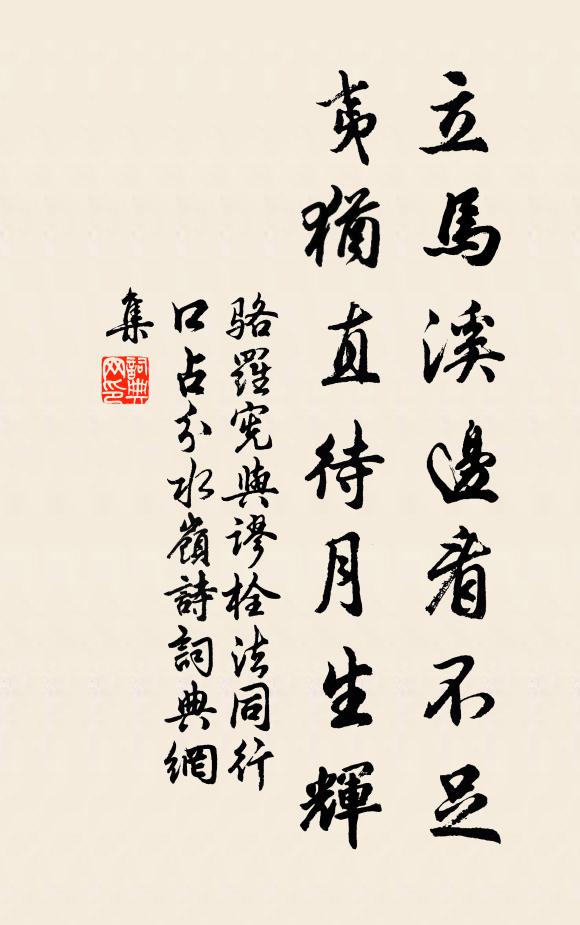 立馬溪邊看不足
夷猶直待月生輝
駱羅憲與謬栓法同行
口占分水嶺詩詞典網
集
詞典网印